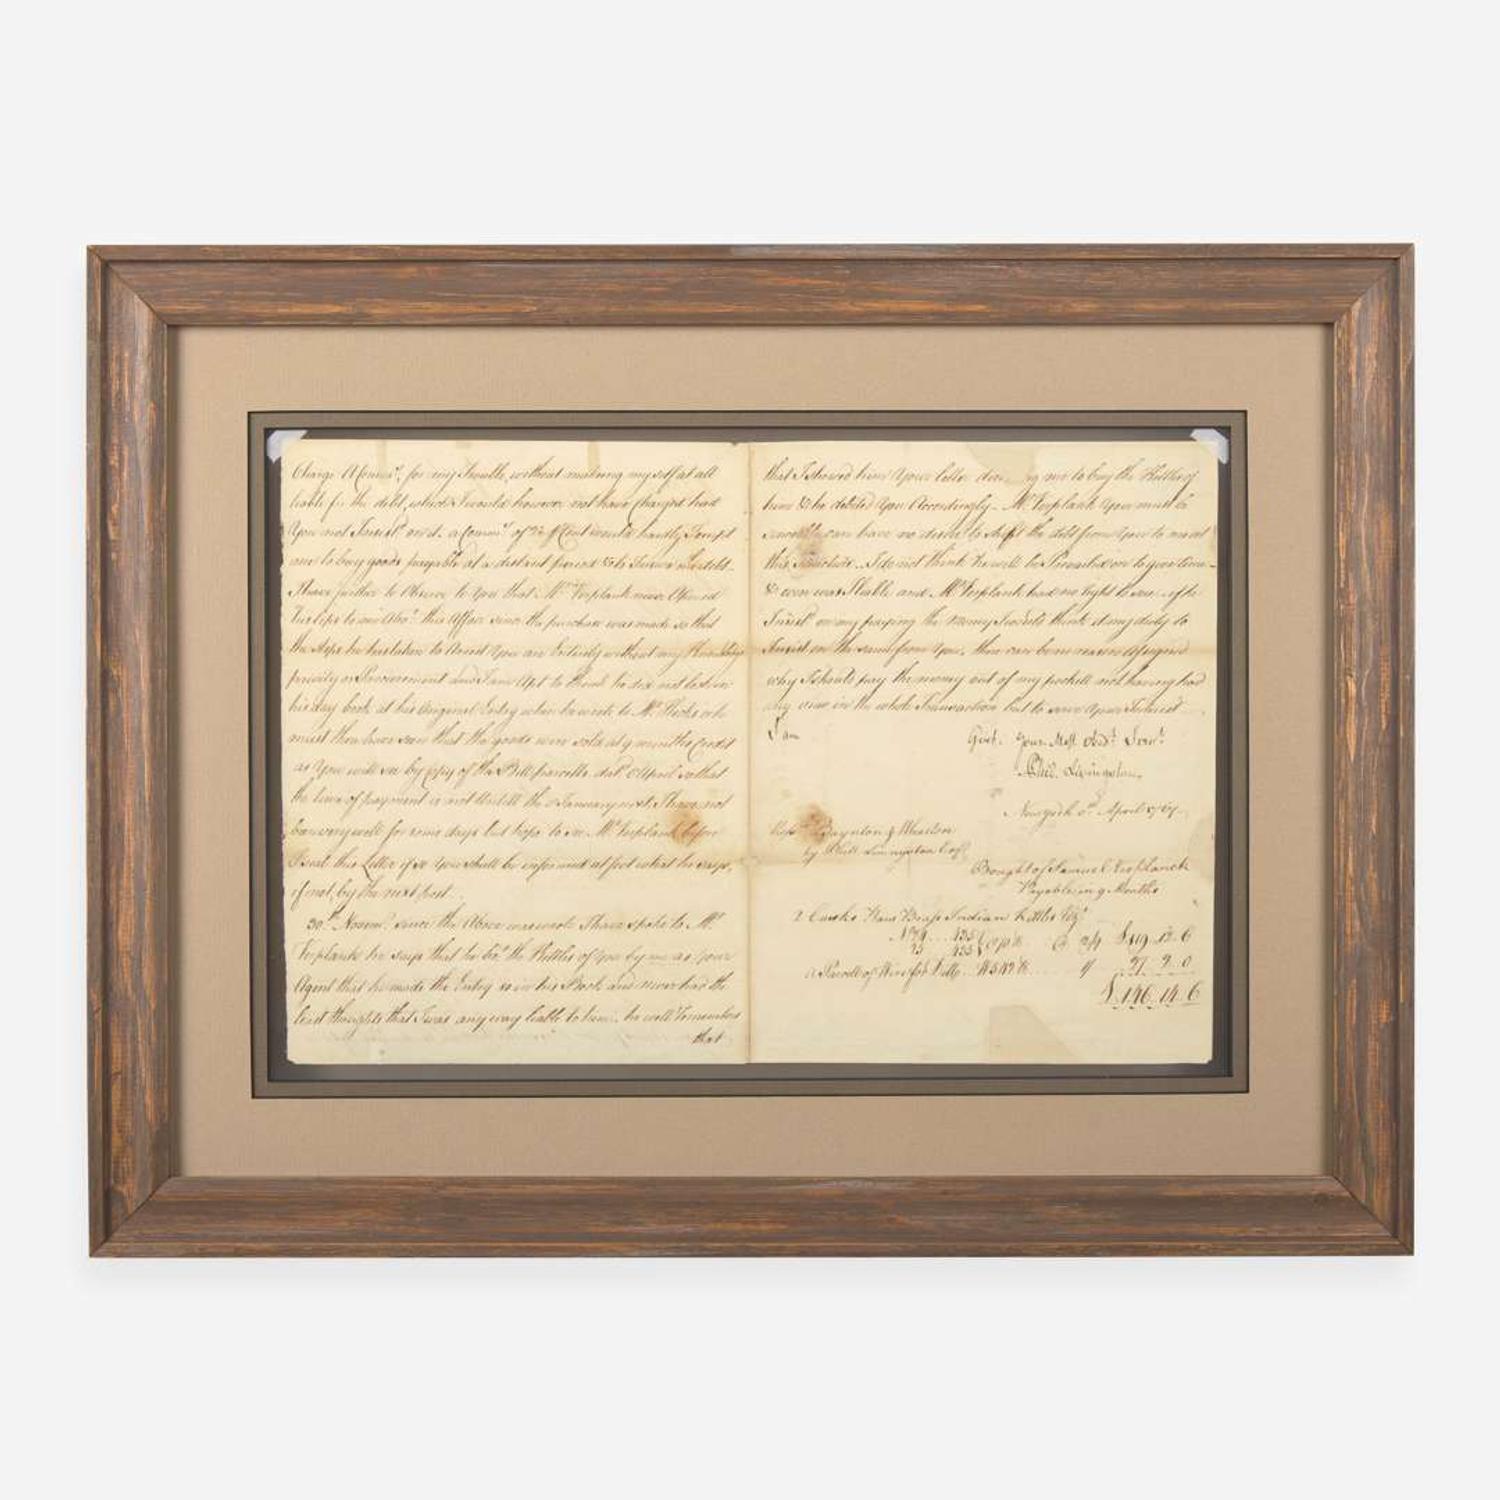 Charge A Commn. for my Trouble, without making myself at all
liable for the debt, which I would however not have Charged had
You not Insistd. on it. a Commn. of 2½ ⅌ Cent would hardly Tempt
me to buy goods payable at a distant period & to Insure the debt.
I have further to Observe to You that Mr. Verplank never Opened
his lips to me Abot. this Affair since the purchase was made so that
the Steps he has taken to Arrest You are Entirely without my
privity or Procurement and I am Apt to think he did not look in
his day book at his Original Entry when he wrote to Mr. who
must then have seen that the goods were sold at 9 months Credit
as You will see by Copy of the Bill parcells datd. 6 April so that
the time of payment is not Untill the 6 January next, I have not
been very well for some days but hope to see Mr. Verplank before
I seal this Letter if so You shall be informed at foot what he says,
if not, by the next post.
30th. Novemr. since the Above was wrote I have spoke to Mr.
Verplank he says that he the Kettles of you by me as Your
Agent that he made the Entry so in his Book and never had the
least thoughts that I was any way liable to him. he well remembers
that
that I shewed him Your letter me to buy the Kettles of
him & he debited You Accordingly. Mr. Verplank You must be
sensible can have no desire to shift the debt from You to me at
this I do not think he will be Prevailed on to give time
& even was I liable and Mr. Verplank had no right to
Insist on my paying the Money I would think it my duty to
Insist on the same from You. there can be no reason Assigned
why I should pay the money out of my pocket not having had
any view in the whole Transaction but to serve Your Interest
I am
Gent. Your Most Obedt. Servt.
Phil. Livingston
New york 6th. April 1767
Messrs. Baynton & Wharton
by Phill Livingston Esqr.
Bought of Samuel Verplanck
Payable in 9 Months
2 Casks Brass Indian Kettles
435
23 435
@ 2/9 £119.12.6
a Parcell of 27.2.0
£146.14.6